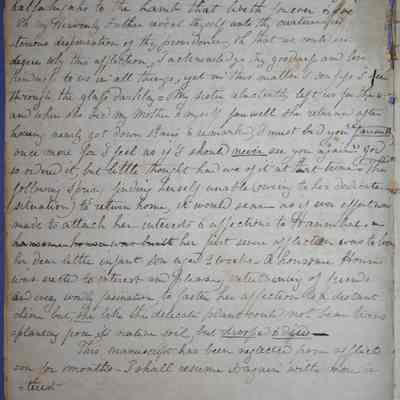 hallowings to the Lamb that liveth forever &
Oh my Heavenly Father reveal thyself unto thy
sterious dispensation of thy providence, Oh that we could in
degree why this affliction, I acknowledge thy goodness and love
kindness to us in all things, yet in this matter I confess I see
through the glass darkly - My sister reluctantly left us for the
and when she bid my Mother & myself farewell she returned after
having nearly got down stairs & remarked, I must bid you farewell
once more for I feel as if I should never see you again; God
so ordered it, but little thought had we of it at that time - The
following Spring finding herself unable owing to her delicate
(situation) to return home, it would seem as if every effort was
made to attach her interests & affections to Hannibal, a
handsome house was built her first seine affliction was to lose
her dear little infant son aged 3 weeks. A handsome House
was erected to interest and please, entertaining of friends
and every worldly fascination to fasten her affection in a distant
clime but she like the delicate plant would not bear trans
splanting from its native soil, but drooped & died
This manuscript has been neglected from afflicti
son for months - I shall resume it again with more in
-terest